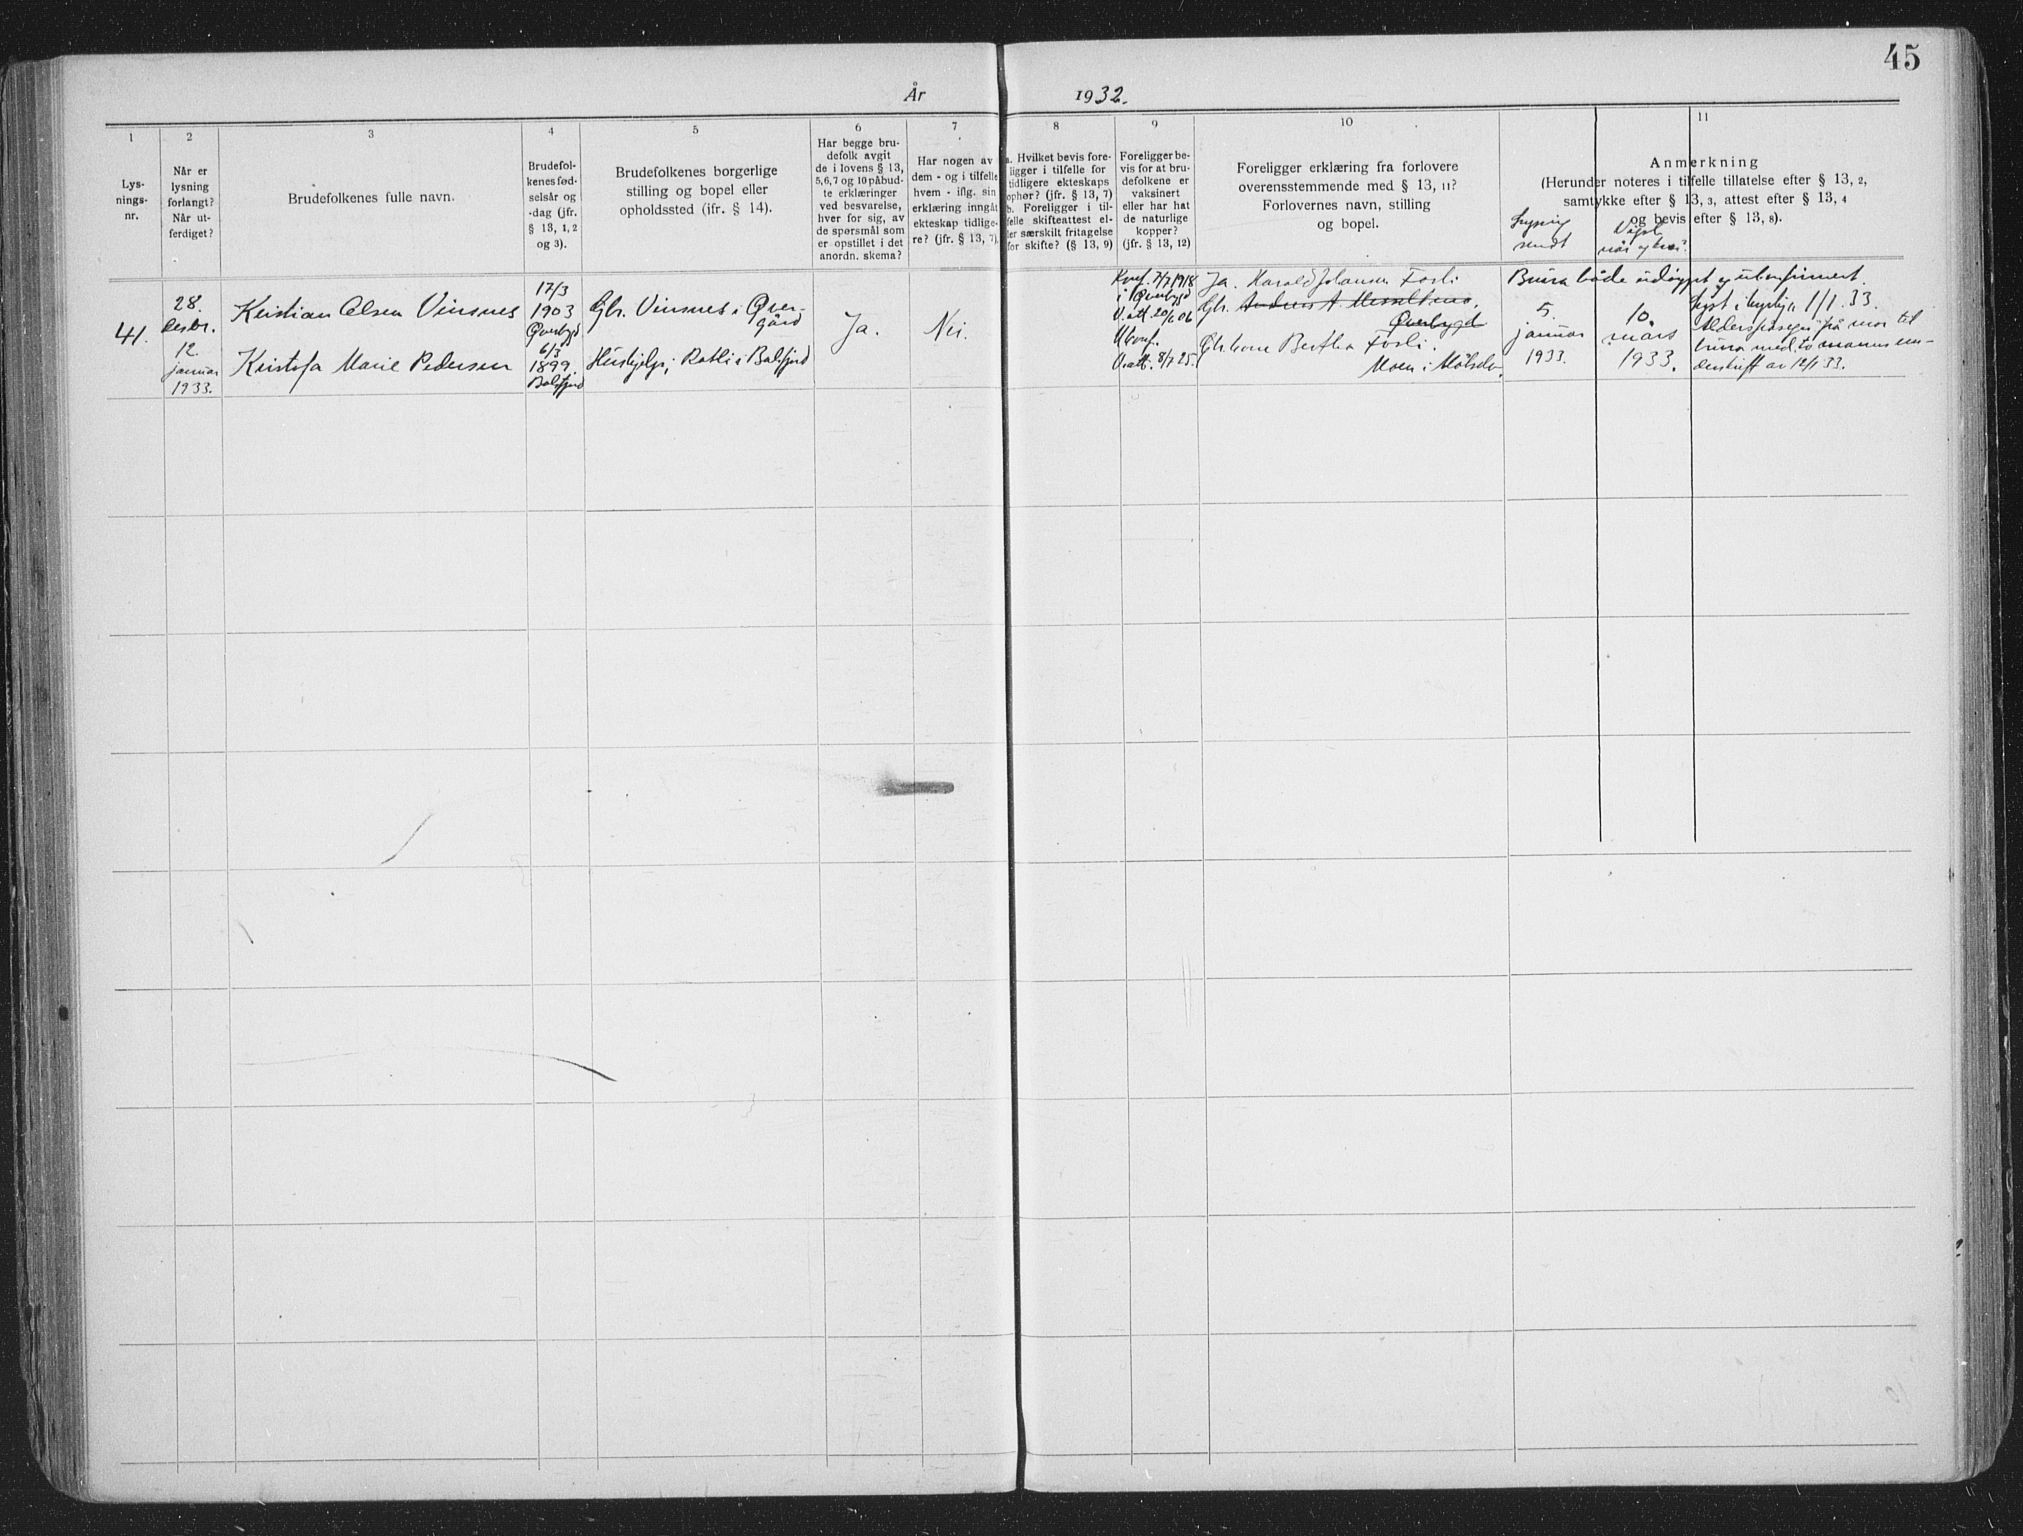 45
År 1932.
1
Lys-
nings-
nr.
2
Når er
lysning
forlangt?
Når ut-
ferdiget?
3
Brudefolkenes fulle navn.
4
Brudefol-
kenes fød-
selsår og
-dag (jfr.
§ 13, 1, 2
og 3).
5
Brudefolkenes borgerlige
stilling og bopel eller
opholdssted (ifr. § 14).
6
Har begge bru-
defolk avgit
de i lovens § 13,
5,6,7 og 10 påbud-
te erklæringer
ved besvarelse,
hver for sig, av
de spørsmål som
er opstillet i det
anordn. skema?
7
Har nogen av
dem - og i tilfelle
hvem - iflg. sin
erklæring inngåt
ekteskap tidlige-
re? (jfr. § 13, 7).
8
a. Hvilket bevis fore-
ligger i tilfelle for
tidligere ekteskaps
ophør? (jfr. § 13, 7)
b. Foreligger i til-
felle skifteattest el-
ler særskilt fritagelse
for skifte? (§ 13, 9)
9
Foreligger be-
vis for at bru-
defolkene er
vaksinert
eller har hat
de naturlige
kopper?
(jfr. § 13, 12)
10
Foreligger erklæring fra forlovere
overensstemmende med § 13, 11?
Forlovernes navn, stilling
og bopel.
11
Anmerkning
(Herunder noteres i tilfelle tillatelse efter § 13, 2,
samtykke efter § 13, 3, attest efter § 13, 4
og bevis efter § 13, 8).
Lysning
sendt
Vigsl.
når og hvor?
41.
28.
desbr.
12.
januar
1933.
Kristian Olsen Vinsnes
Kristofa Marie Pedersen
17/3
1903
Øverbygd
6/3
1899.
Balsfjord
Gbr. Vinsnes i Øver-
gård
Hushjelp, i Balsfjord
Ja.
Nei.
Konf. 7/7 1918
i Øverbygd
V. att. 20/6 06
Ukonf.
V. att. 8/7 25.
Ja. Harald Johansen Fosli
Gbr. Øverbygd
Gbr.kone Bertha Fosli.
Moen i Målselv.
Brura både udøypt og ukonfirmert.
5.
januar
1933.
10.
mars
1933.
Lyst i 1/1. 33.
frå mor til
brura med to manns un-
derskrift av 12/1 33.